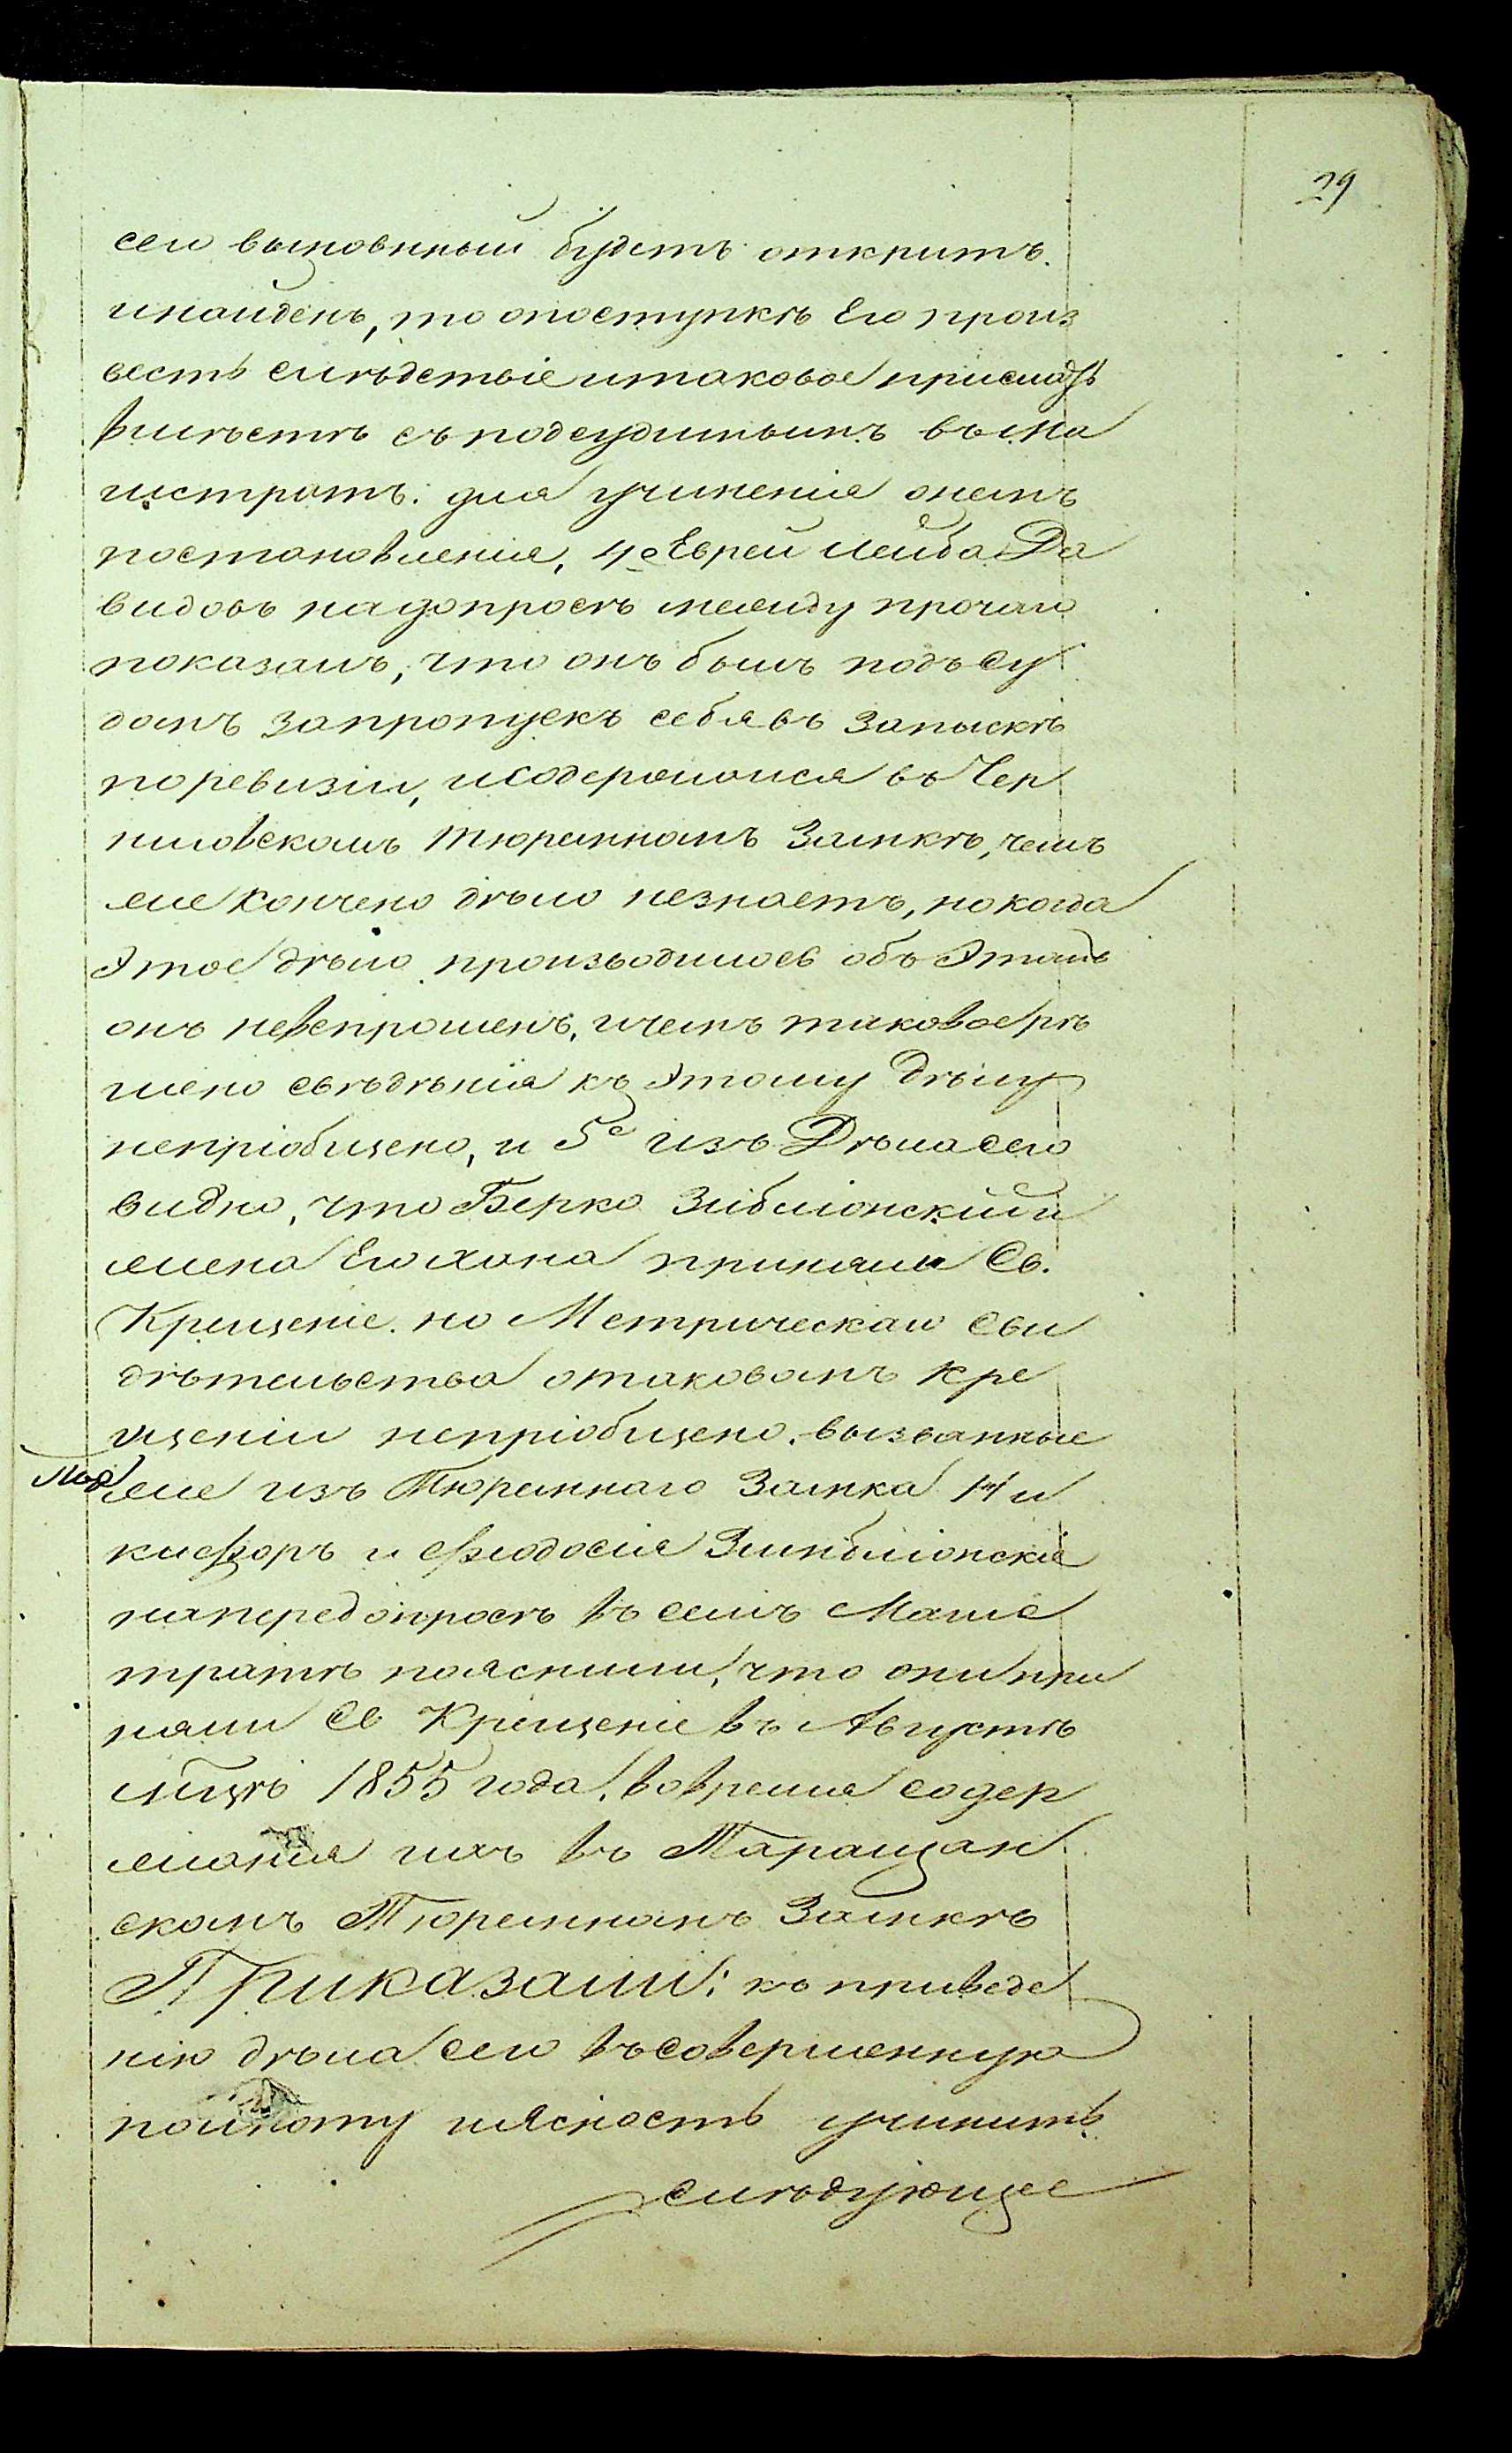 29
сего выновнный будетъ открытъ.
инайденъ, то опоступкѣ Его произ
весть слѣдствіе итаковое прислать
вмѣстѣ съ подсудимымъ въ ма
гистратъ. для учиненія онемъ
постановленія, 4е Еврей Лейба Да
видовъ на допросѣ между прочаго
показалъ, что онъ былъ подъ Су
домъ запропускъ себя въ запискѣ
по ревизіи, исодержался въ Чер
ниговскомъ тюремномъ Замкѣ, чемъ
же кончено дѣло незнаетъ, но когда
Этое дѣло производилось объ Этомъ
онъ невспрошенъ, ичемъ таковое рѣ
шено свѣдѣнія къ Этому Дѣлу
непріобщено, и 5е изъ Дѣла сего
видно, что Берко Зибліонскій и
жена Его Хана приняли Св.
Крещеніе. но Метрическаго Сви
дѣтельства отаковомъ кре
щеніи непріобщено. вызванные
же изъ Тюремнаго Замка Ни
кифоръ и Феодосія Зимбліонскіе
напередопросѣ въ семъ Магис
тратѣ пояснили, что они при
няли Св Крещеніе въ Августѣ
мѣцѣ 1855 года, вовремя содер
жанія ихъ въ Таращан
скомъ Тюремномъ Замкѣ
Приказали: къ приведе
нію дѣла сего въ совершенную
полноту иясность учинить
слѣдующее